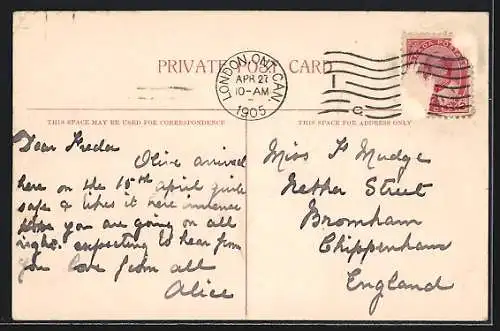 PRIVATE POST CARD
LONDON, ONT. CAN.
APR 27
10-AM
1905
C
THIS SPACE MAY BE USED FOR CORRESPONDENCE
THIS SPACE FOR ADDRESS ONLY
Dear Freda
Olive arrived
here on the 15th April quite
safe & likes it here
hope you are going on all
right. expecting to hear from
you love from all
Alice
Miss F Mudge
Nether Street
Bromham
Chippenham
England